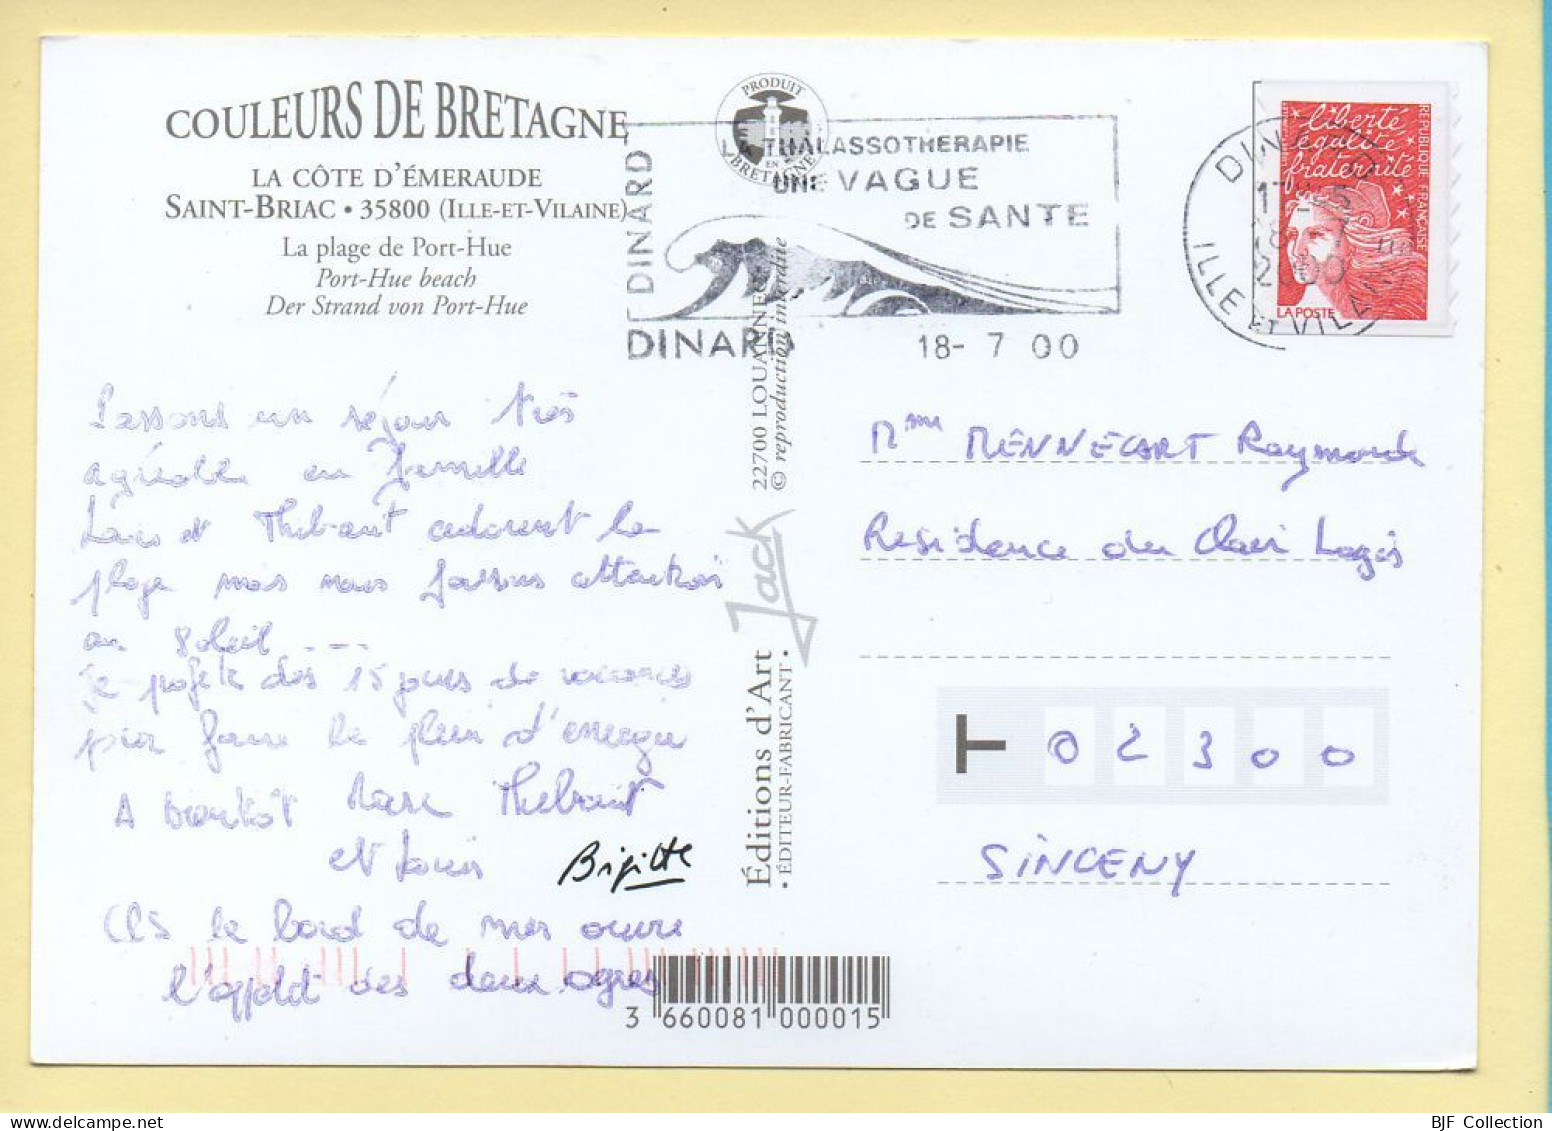 COULEURS DE BRETAGNE
LA CÔTE D'ÉMERAUDE
SAINT-BRIAC • 35800 (ILLE-ET-VILAINE)
La plage de Port-Hue
Port-Hue beach
Der Strand von Port-Hue
PRODUIT EN BRETAGNE
DINARD
LA THALASSOTHERAPIE
UNE VAGUE
DE SANTE
DINARD
18- 7 00
DINARD
17H-45
18-7
2000
ILLE ET VILAINE
liberté
égalité
fraternité
REPUBLIQUE FRANÇAISE
LA POSTE
Passons un séjour très
agréable en famille
Louis et Thibaut adorent la
plage mais nous faisons attention
au soleil ----
Je profite des 15 jours de vacances
pour faire le plein d'énergie
A bientôt Marc Thibaut
et Louis Brigitte
le bord de mer ouvre
l'appétit des deux ogres
22700 LOUANNEC
© reproduction interdite
Jack
Éditions d'Art
• ÉDITEUR-FABRICANT •
3 660081 000015
Mme MENNECART Raymonde
Residence du Clair Logis
T 02300
SINCENY
BJF Collection